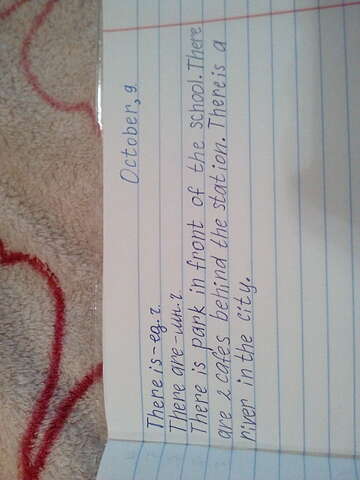 October, 9
There is - ед. ч.
There are - мн. ч
There is park in front of the school. There
are 2 cafes behind the station. There is a
river in the city.